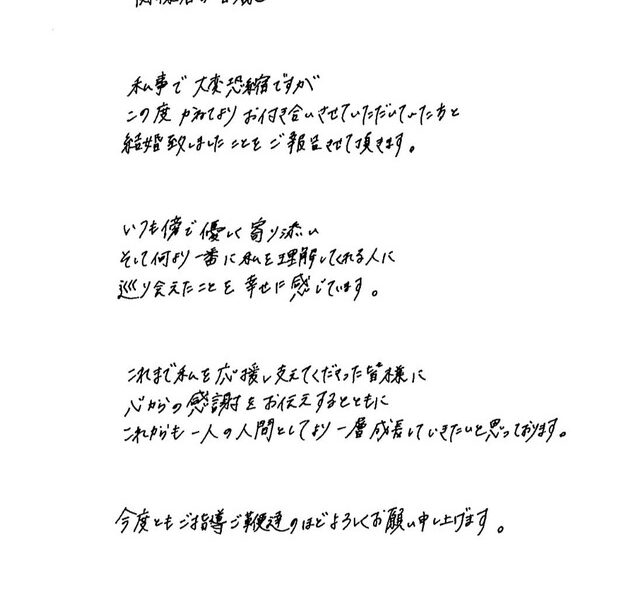 私事で大変恐縮ですが
この度かねてよりお付き合いさせていただいていた方と
結婚致しましたことをご報告させて頂きます。
いつも傍で優しく寄り添い
そして何より一番に私を理解してくれる人に
巡り会えたことを幸せに感じています。
これまで私を応援し支えてくださった皆様に
心からの感謝をお伝えするとともに
これからも一人の人間としてより一層成長していきたいと思っております。
今度ともご指導ご鞭撻のほどよろしくお願い申し上げます。